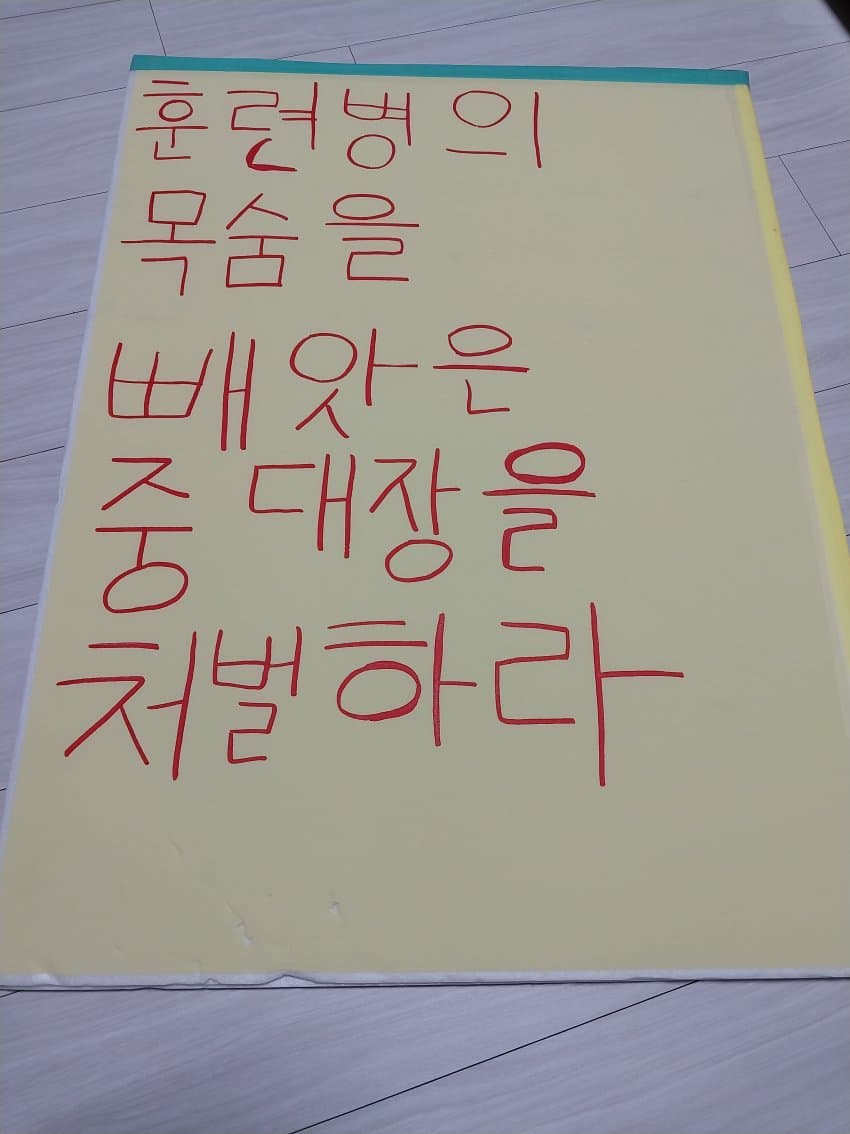 훈련병의
목숨을
빼앗은
중대장을
처벌하라